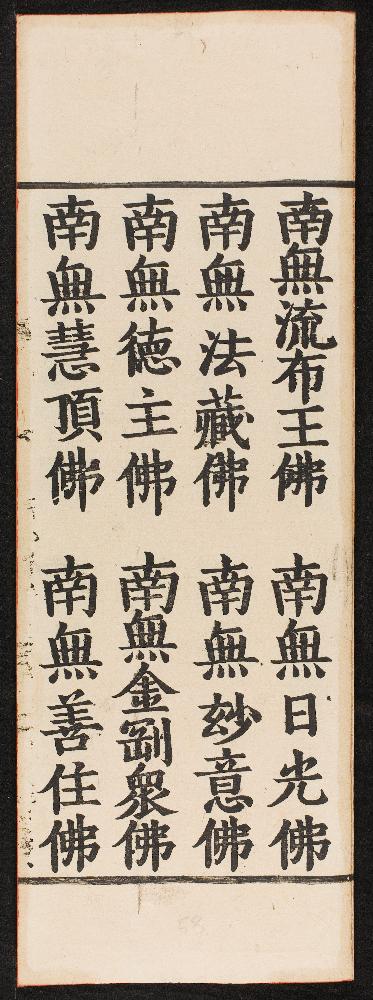 南無流布王佛 南無日光佛
南無法藏佛 南無玅意佛
南無德主佛 南無金剛衆佛
南無慧頂佛 南無善住佛